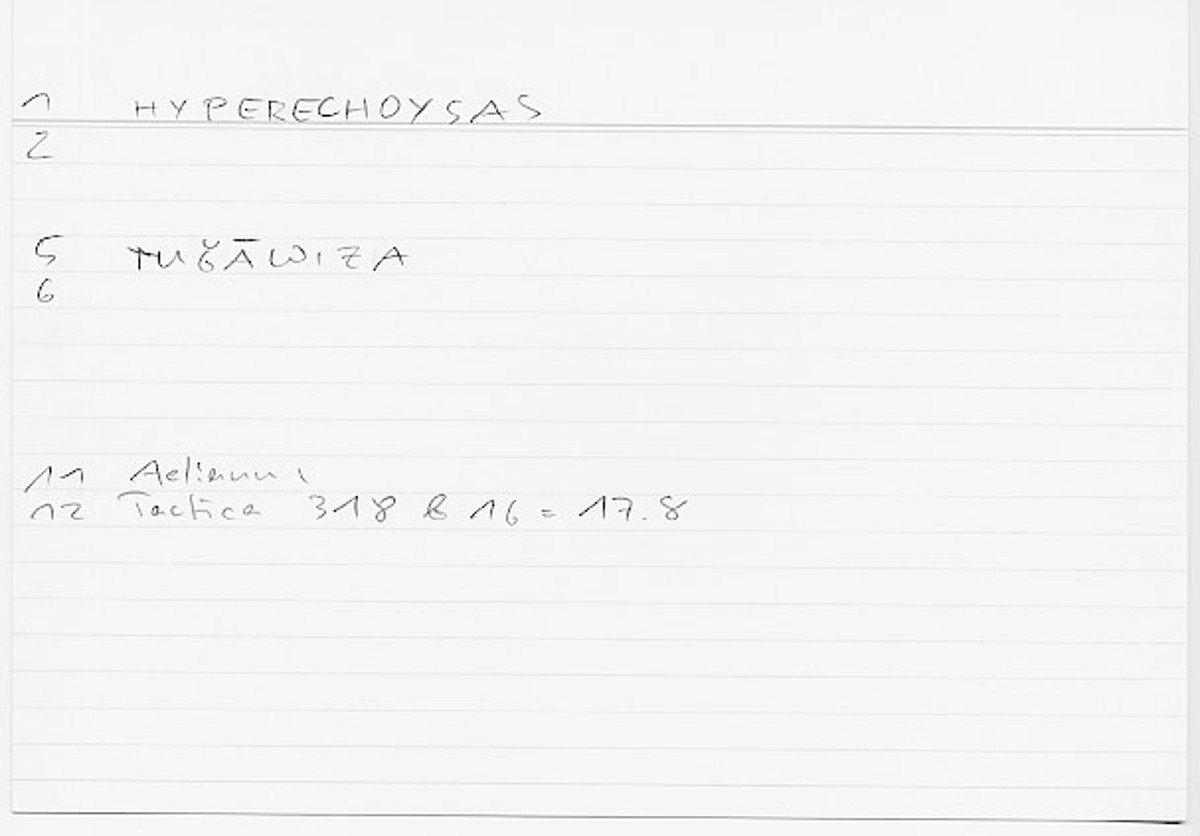 1 HYPERECHOYSAS
2
5 MUǦĀWIZA
6
11 Aelianus
12 Tactica 318 b 16 = 17.8